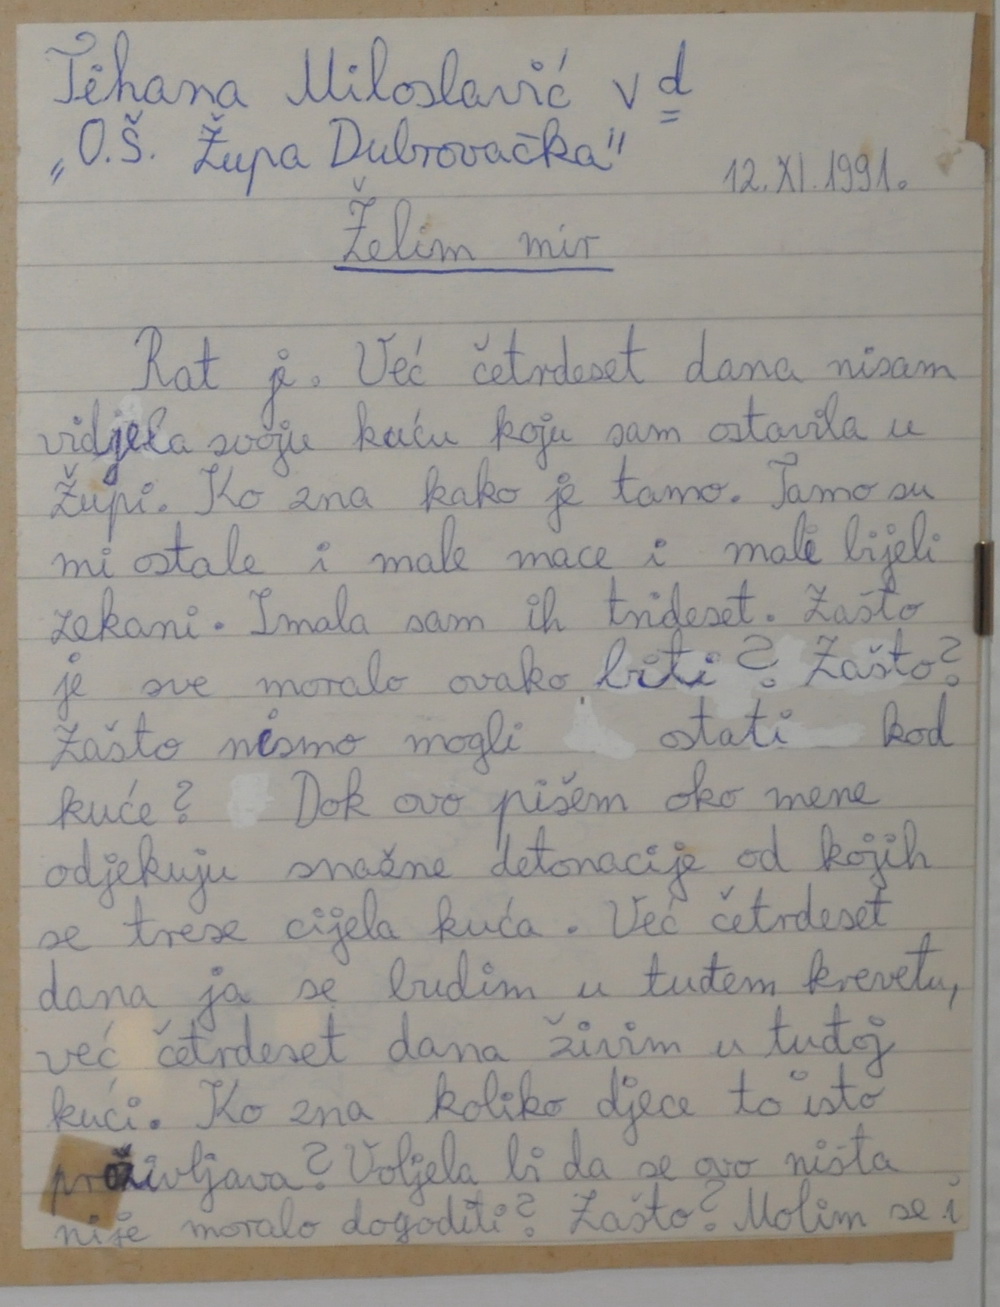 Tihana Miloslavić V d
„O.Š. Župa Dubrovačka"
12. XI. 1991.
Želim mir
Rat je. Već četrdeset dana nisam
vidjela svoju kuću koju sam ostavila u
Župi. Ko zna kako je tamo. Tamo su
mi ostale i male mace i mali bijeli
zekani. Imala sam ih trideset. Zašto
je sve moralo ovako biti? Zašto?
Zašto nismo mogli ostati kod
kuće? Dok ovo pišem oko mene
odjekuju snažne detonacije od kojih
se trese cijela kuća. Već četrdeset
dana ja se budim u tuđem krevetu,
već četrdeset dana živim u tuđoj
kući. Ko zna koliko djece to isto
proživljava? Voljela bi da se ovo ništa
nije moralo dogoditi? Zašto? Molim se i